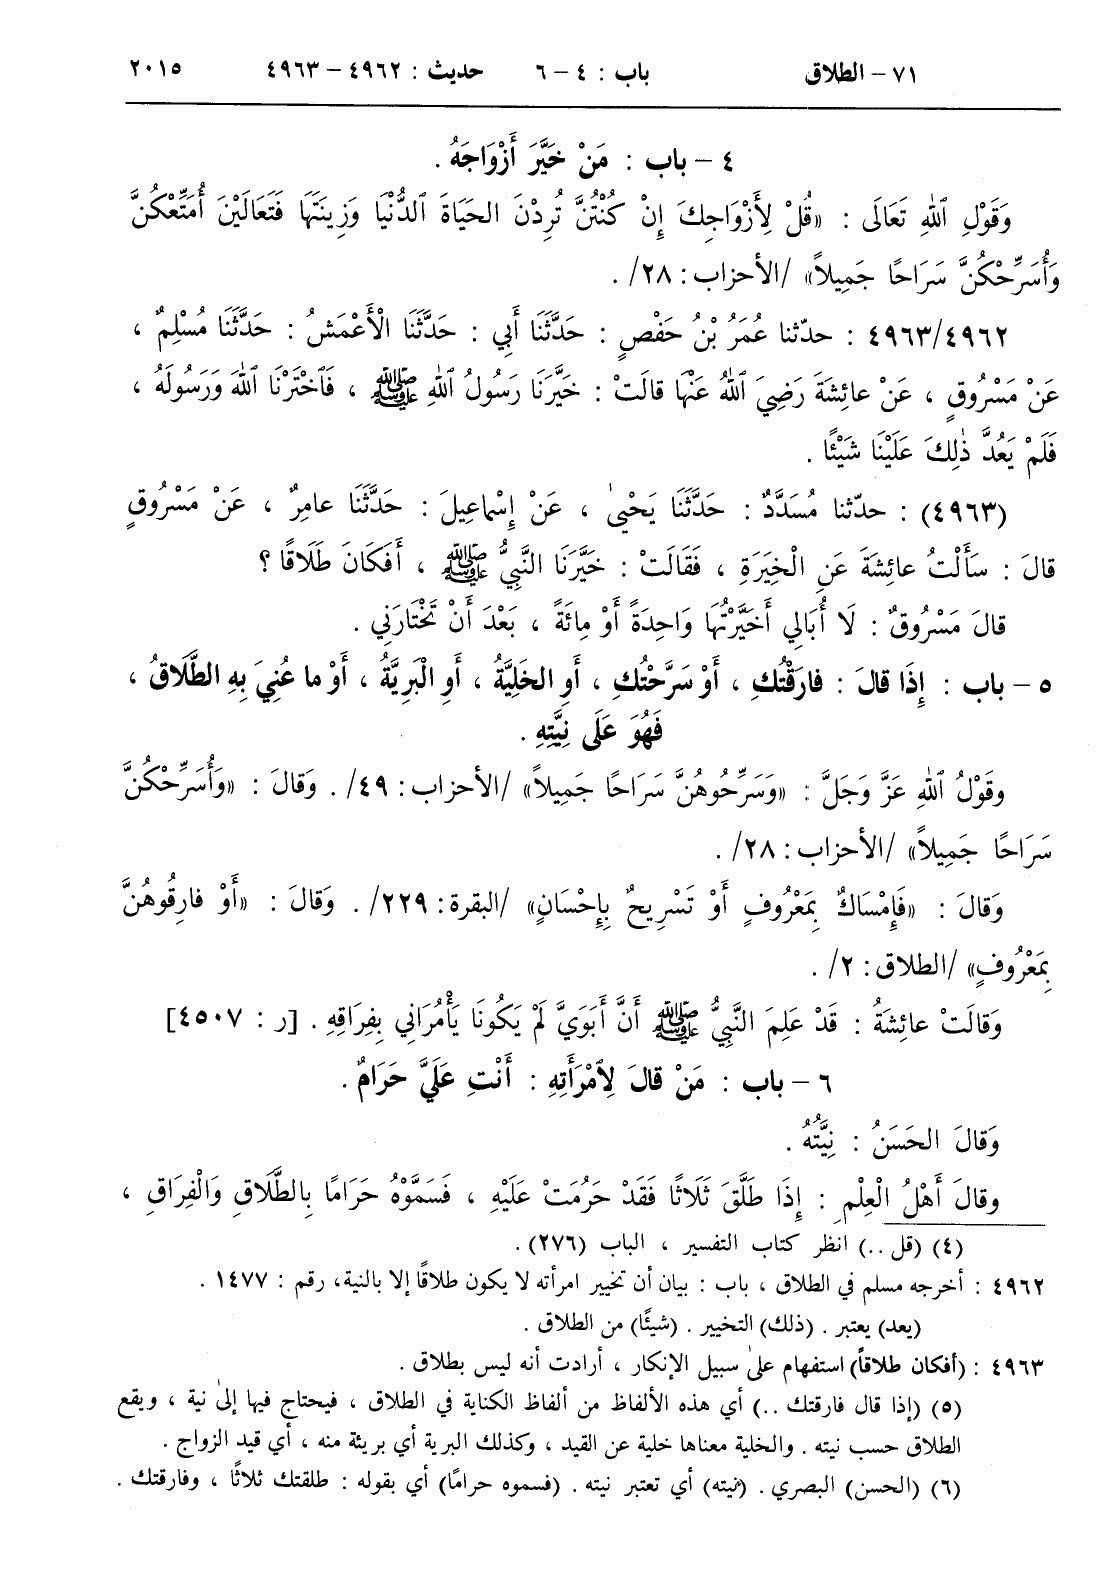 ٧١ – الطلاق باب : ٤ – ٦ حديث : ٤٩٦٢ – ٤٩٦٣ ٢٠١٥
٤ – باب : مَنْ خَيَّرَ أَزْوَاجَهُ .
وَقَوْلِ ٱللهِ تَعَالَى : «قُلْ لِأَزْوَاجِكَ إِنْ كُنْتُنَّ تُرِدْنَ الحَيَاةَ ٱلدُّنْيَا وَزِينَتَهَا فَتَعَالَيْنَ أُمَتِّعْكُنَّ
وَأُسَرِّحْكُنَّ سَرَاحًا جَمِيلاً» /الأحزاب : ٢٨/ .
٤٩٦٣/٤٩٦٢ : حدّثنا عُمَرُ بْنُ حَفْصٍ : حَدَّثَنَا أَبِي : حَدَّثَنَا الْأَعْمَشُ : حَدَّثَنَا مُسْلِمٌ ،
عَنْ مَسْرُوقٍ ، عَنْ عائِشَةَ رَضِيَ ٱللهُ عَنْهَا قالَتْ : خَيَّرَنَا رَسُولُ ٱللهِ ﷺ ، فَٱخْتَرْنَا ٱللهَ وَرَسُولَهُ ،
فَلَمْ يَعُدَّ ذٰلِكَ عَلَيْنَا شَيْئًا .
(٤٩٦٣) : حدّثنا مُسَدَّدٌ : حَدَّثَنَا يَحْيىٰ ، عَنْ إِسْماعِيلَ : حَدَّثَنَا عامِرٌ ، عَنْ مَسْرُوقٍ
قالَ : سَأَلْتُ عائِشَةَ عَنِ الْخِيَرَةِ ، فَقَالَتْ : خَيَّرَنَا النَّبِيُّ ﷺ ، أَفَكَانَ طَلَاقًا ؟
قالَ مَسْرُوقٌ : لَا أُبَالِي أَخَيَّرْتُهَا وَاحِدَةً أَوْ مِائَةً ، بَعْدَ أَنْ تَخْتَارَنِي .
٥ – باب : إِذَا قالَ : فارَقْتُكِ ، أَوْ سَرَّحْتُكِ ، أَوِ الخَلِيَّةُ ، أَوِ الْبَرِيَّةُ ، أَوْ ما عُنِيَ بِهِ الطَّلَاقُ ،
فَهُوَ عَلَى نِيَّتِهِ .
وقَوْلُ ٱللهِ عَزَّ وَجَلَّ : «وَسَرِّحُوهُنَّ سَرَاحًا جَمِيلاً» /الأحزاب : ٤٩/ . وَقالَ : «وَأُسَرِّحْكُنَّ
سَرَاحًا جَمِيلاً» /الأحزاب : ٢٨/ .
وَقالَ : «فَإِمْسَاكٌ بِمَعْرُوفٍ أَوْ تَسْرِيحٌ بِإِحْسَانٍ» /البقرة : ٢٢٩/ . وَقالَ : «أَوْ فارِقُوهُنَّ
بِمَعْرُوفٍ» /الطلاق : ٢/ .
وَقالَتْ عائِشَةُ : قَدْ عَلِمَ النَّبِيُّ ﷺ أَنَّ أَبَوَيَّ لَمْ يَكُونَا يَأْمُرَانِي بِفِرَاقِهِ . [ر : ٤٥٠٧]
٦ – باب : مَنْ قالَ لِٱمْرَأَتِهِ : أَنْتِ عَلَيَّ حَرَامٌ .
وَقالَ الحَسَنُ : نِيَّتُهُ .
وقالَ أَهْلُ الْعِلْمِ : إِذَا طَلَّقَ ثَلَاثًا فَقَدْ حَرُمَتْ عَلَيْهِ ، فَسَمَّوْهُ حَرَامًا بِالطَّلَاقِ وَالْفِرَاقِ ،
(٤) (قل ..) انظر كتاب التفسير ، الباب (٢٧٦) .
٤٩٦٢ : أخرجه مسلم في الطلاق ، باب : بيان أن تخيير امرأته لا يكون طلاقًا إلا بالنية، رقم : ١٤٧٧ .
(يعد) يعتبر . (ذلك) التخيير . (شيئًا) من الطلاق .
٤٩٦٣ : (أفكان طلاقاً) استفهام علىٰ سبيل الإنكار ، أرادت أنه ليس بطلاق .
(٥) (إذا قال فارقتك ..) أي هذه الألفاظ من ألفاظ الكناية في الطلاق ، فيحتاج فيها إلىٰ نية ، ويقع
الطلاق حسب نيته . والخلية معناها خلية عن القيد ، وكذلك البرية أي بريئة منه ، أي قيد الزواج .
(٦) (الحسن) البصري . (نيته) أي تعتبر نيته . (فسموه حرامًا) أي بقوله : طلقتك ثلاثًا ، وفارقتك .